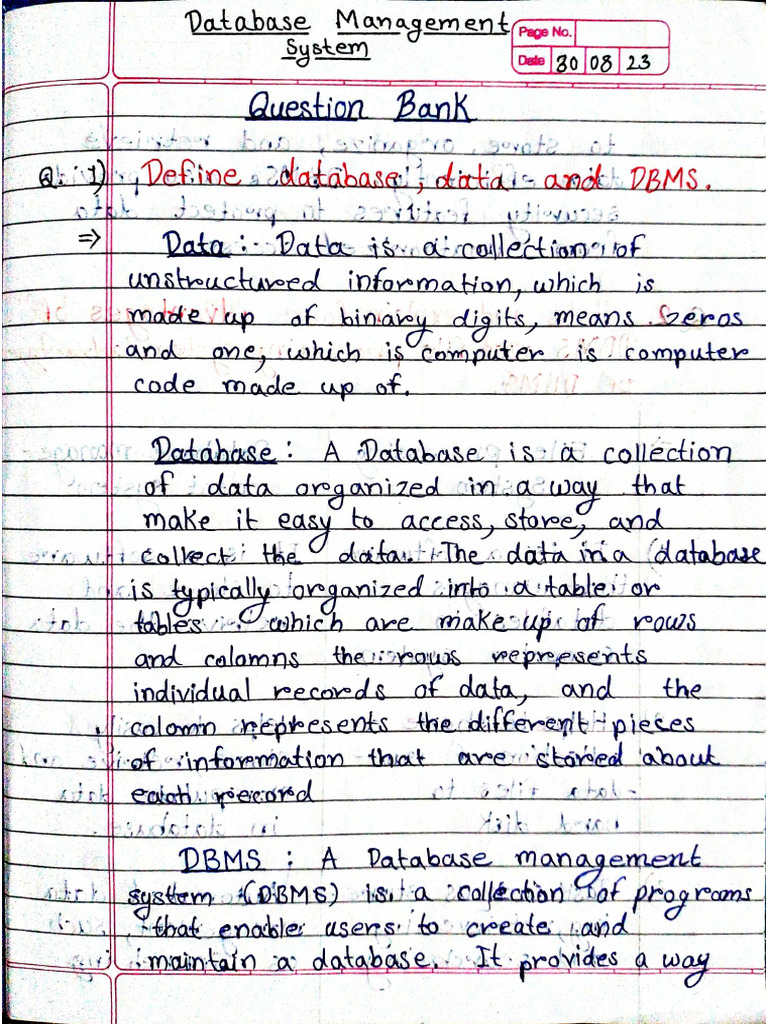 Database Management
System
Page No.
Date 30 08 23
Question Bank
Q. 1) Define database, data and DBMS.
⇒ Data :- Data is a collection of
unstructured information, which is
made up of binary digits, means zeros
and one, which is computer is computer
code made up of.
Database : A Database is a collection
of data organized in a way that
make it easy to access, store, and
collect the data. The data in a database
is typically organized into a table or
tables. which are make up of rows
and colamns the rows represents
individual records of data, and the
colomn represents the different pieces
of information that are stored about
each record
DBMS : A Database management
system (DBMS) is a collection of programs
that enable users to create and
maintain a database. It provides a way